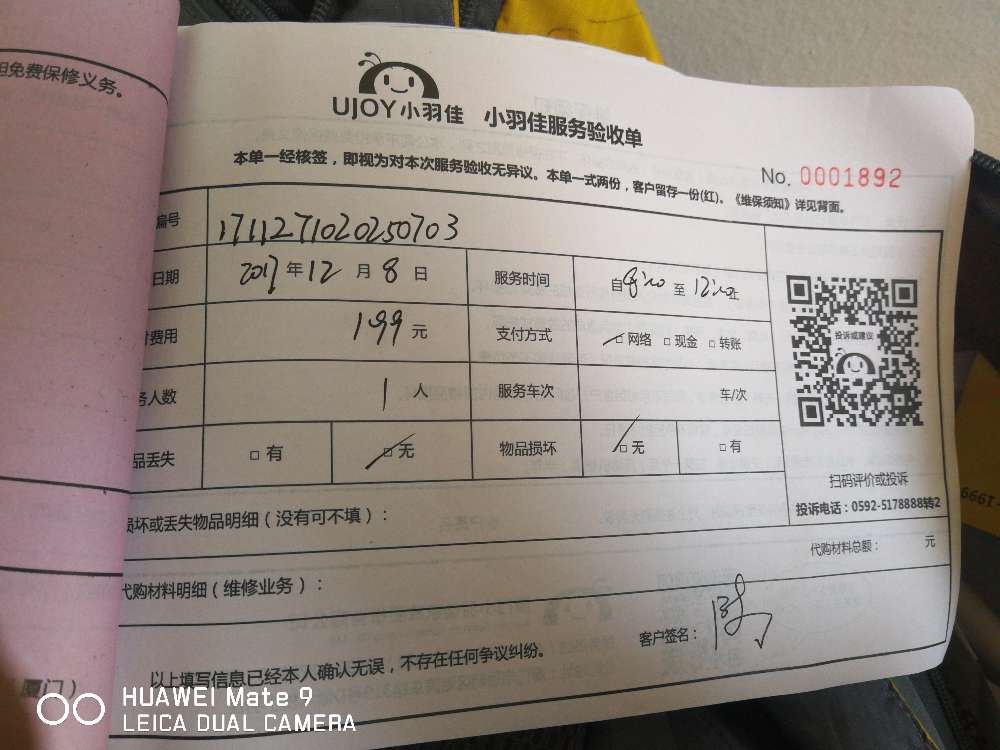 担免费保修义务。
UJOY小羽佳 小羽佳服务验收单
本单一经核签，即视为对本次服务验收无异议。本单一式两份，客户留存一份(红)。《维保须知》详见背面。
No. 0001892
编号 1711271020250703
日期 2017年12月8日 服务时间 自8:00至12:00止
付费用 199元 支付方式 □网络 □现金 □转账
务人数 1人 服务车次 车/次
品丢失 □有 □无 物品损坏 □无 □有
投诉或建议
扫码评价或投诉
投诉电话：0592-5178888转2
损坏或丢失物品明细（没有可不填）：
代购材料总额： 元
代购材料明细（维修业务）：
客户签名：
以上填写信息已经本人确认无误，不存在任何争议纠纷。
厦门）
HUAWEI Mate 9
LEICA DUAL CAMERA